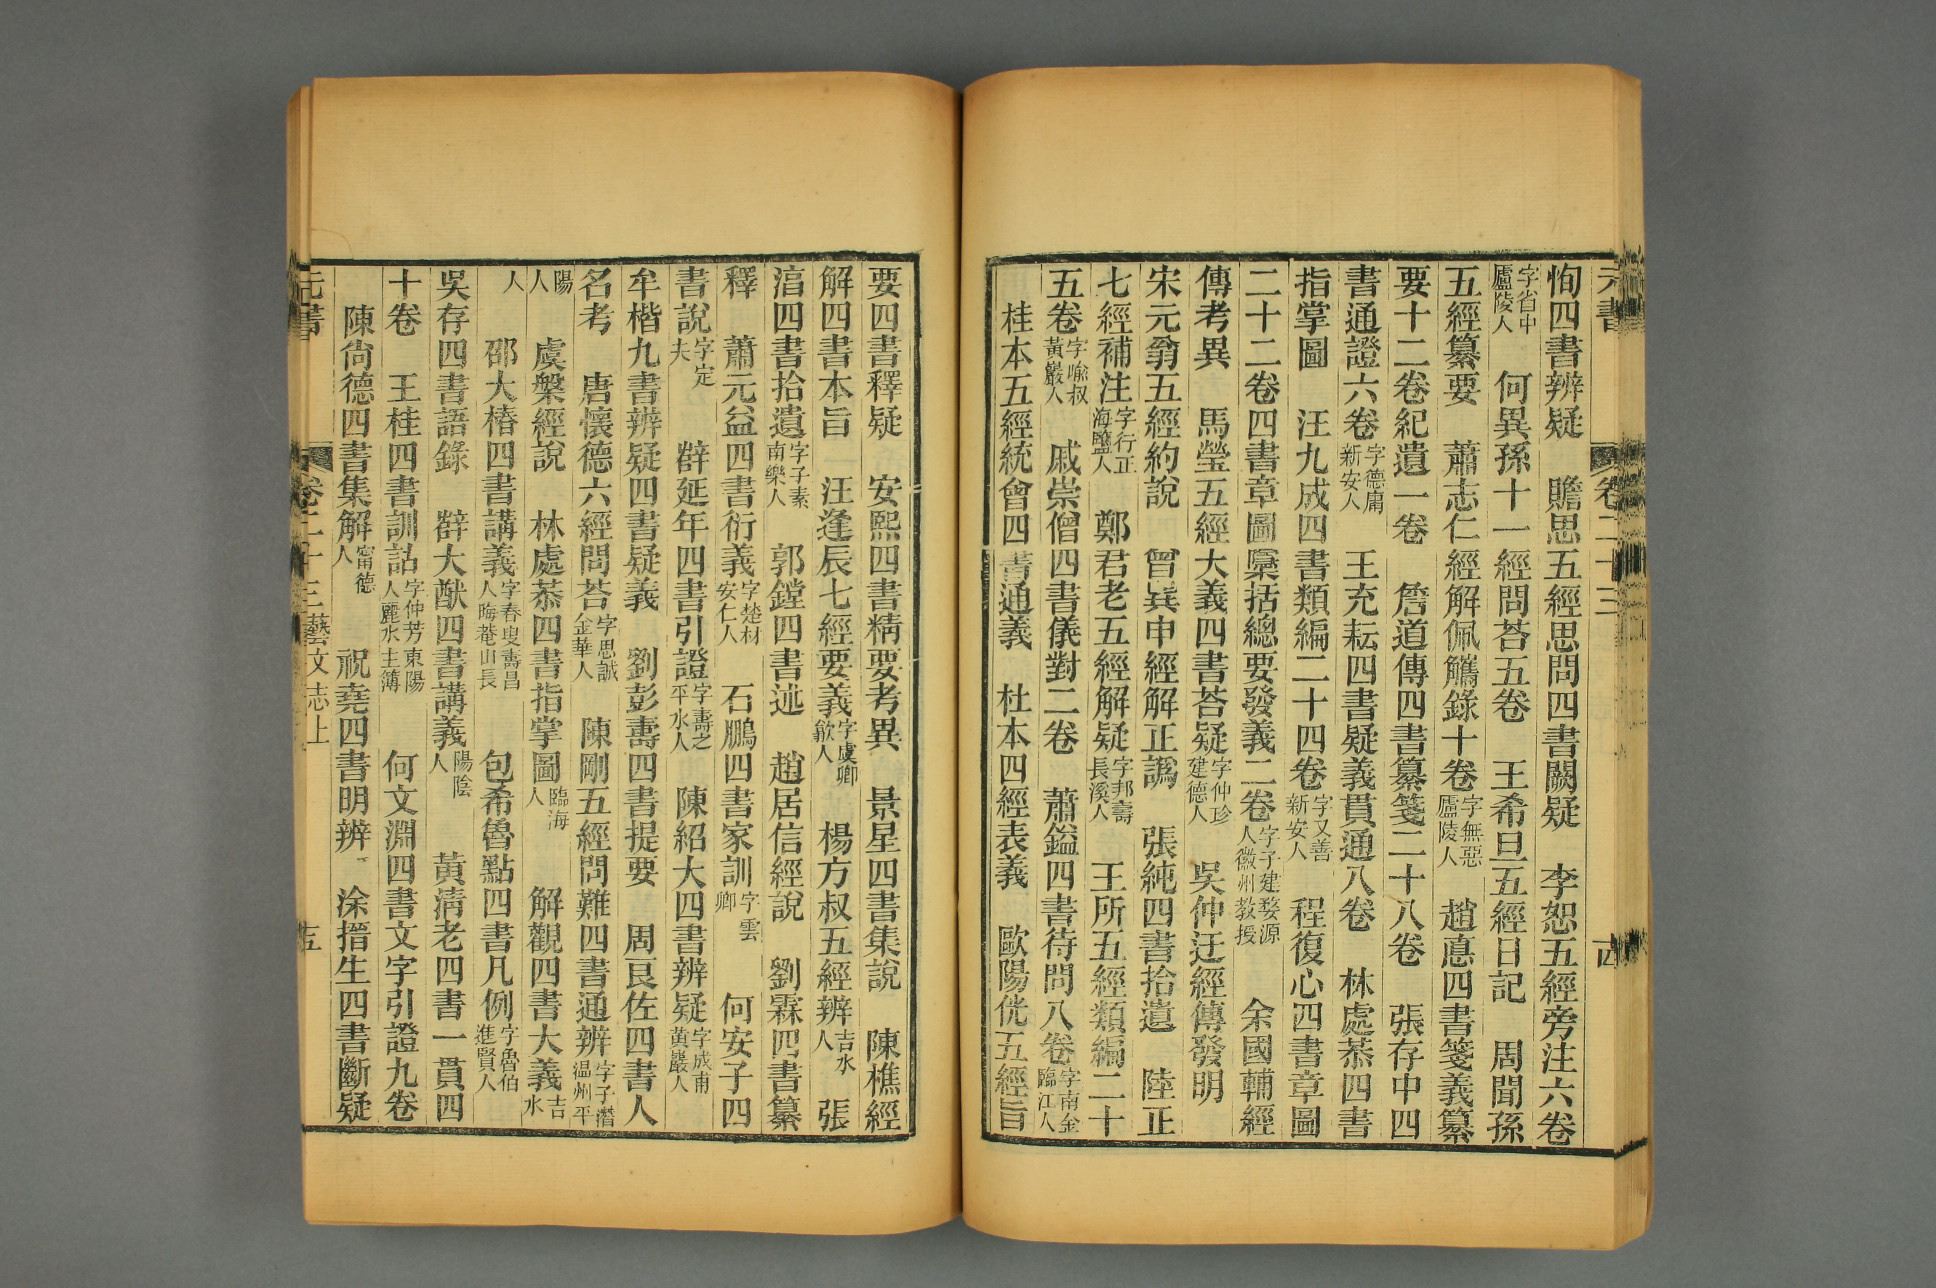 元書 卷二十三 四
恂四書辨疑 贍思五經思問四書闕疑 李恕五經旁注六卷
字省中廬陵人 何異孫十一經問荅五卷 王希旦五經日記 周聞孫
五經纂要 蕭志仁經解佩觿錄十卷字無惡廬陵人 趙悳四書箋義纂
要十二卷紀遺一卷 詹道傳四書纂箋二十八卷 張存中四
書通證六卷字德庸新安人 王充耘四書疑義貫通八卷 林處恭四書
指掌圖 汪九成四書類編二十四卷字又善新安人 程復心四書章圖
二十二卷四書章圖檃括總要發義二卷字子建婺源人徽州教授 余國輔經
傳考異 馬瑩五經大義四書荅疑字仲珍建德人 吳仲迂經傳發明
宋元翁五經約說 曾巽申經解正譌 張純四書拾遺 陸正
七經補注字行正海鹽人 鄭君老五經解疑字邦壽長溪人 王所五經類編二十
五卷字喩叔黃巖人 戚崇僧四書儀對二卷 蕭鎰四書待問八卷字南金臨江人
桂本五經統會四書通義 杜本四經表義 歐陽侊五經旨
要四書釋疑 安熙四書精要考異 景星四書集說 陳樵經
解四書本旨 汪逢辰七經要義字虞卿歙人 楊方叔五經辨吉水人 張
淯四書拾遺字子素南樂人 郭鏜四書述 趙居信經說 劉霖四書纂
釋 蕭元益四書衍義字楚材安仁人 石鵬四書家訓字雲卿 何安子四
書說字定夫 辥延年四書引證字壽之平水人 陳紹大四書辨疑字成甫黃巖人
牟楷九書辨疑四書疑義 劉彭壽四書提要 周良佐四書人
名考 唐懷德六經問荅字思誠金華人 陳剛五經問難四書通辨字子潛温州平
陽人 虞槃經說 林處恭四書指掌圖臨海人 解觀四書大義吉水
人 邵大椿四書講義字春叟壽昌人晦菴山長 包希魯點四書凡例字魯伯進賢人
吳存四書語錄 辥大猷四書講義陽陰人 黃淸老四書一貫四
十卷 王桂四書訓詁字仲芳東陽人麗水主簿 何文淵四書文字引證九卷
陳尙德四書集解甯德人 祝堯四書明辨 涂搢生四書斷疑
元書 卷二十三 藝文志上 五